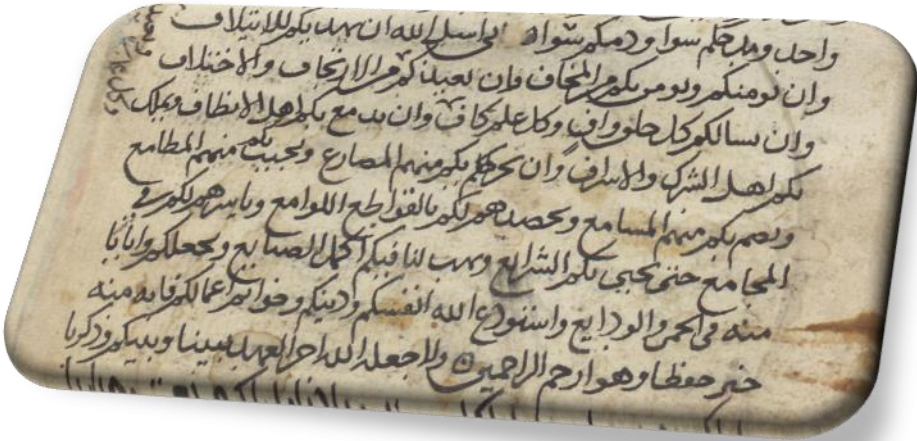 واحد ومدحكم سوا ودمكم سواه اني اسل الله ان يهد بكم للايتلاف
وان يومنكم ويومن بكم من المخاف وان يعيذكم من الارتجاف والاختلاف
وان يسالكم كل خلق واف وكل علم كاف وان يدمع بكم اهل الانطاف ويهلك
بكم اهل الشرك والاسراف وان يحرهم بكم منهم المصارع ويخيب بكم منهم المطامع
ويصم بكم منهم المسامع ويحصدهم لكم بالقواطع اللوامع وياسرهم لكم في
المجامع حتى يحيى بكم الشرايع ويهب لنا فيكم اكمل الصنايع ويجعلكم وايانا
منه في الحمى والودايع واستودع الله انفسكم ودينكم وخواتم اعمالكم فانه منه
خير حفظا وهو ارحم الراحمين ولا جعله الله اخر العهد بيننا وبينكم وذكرنا